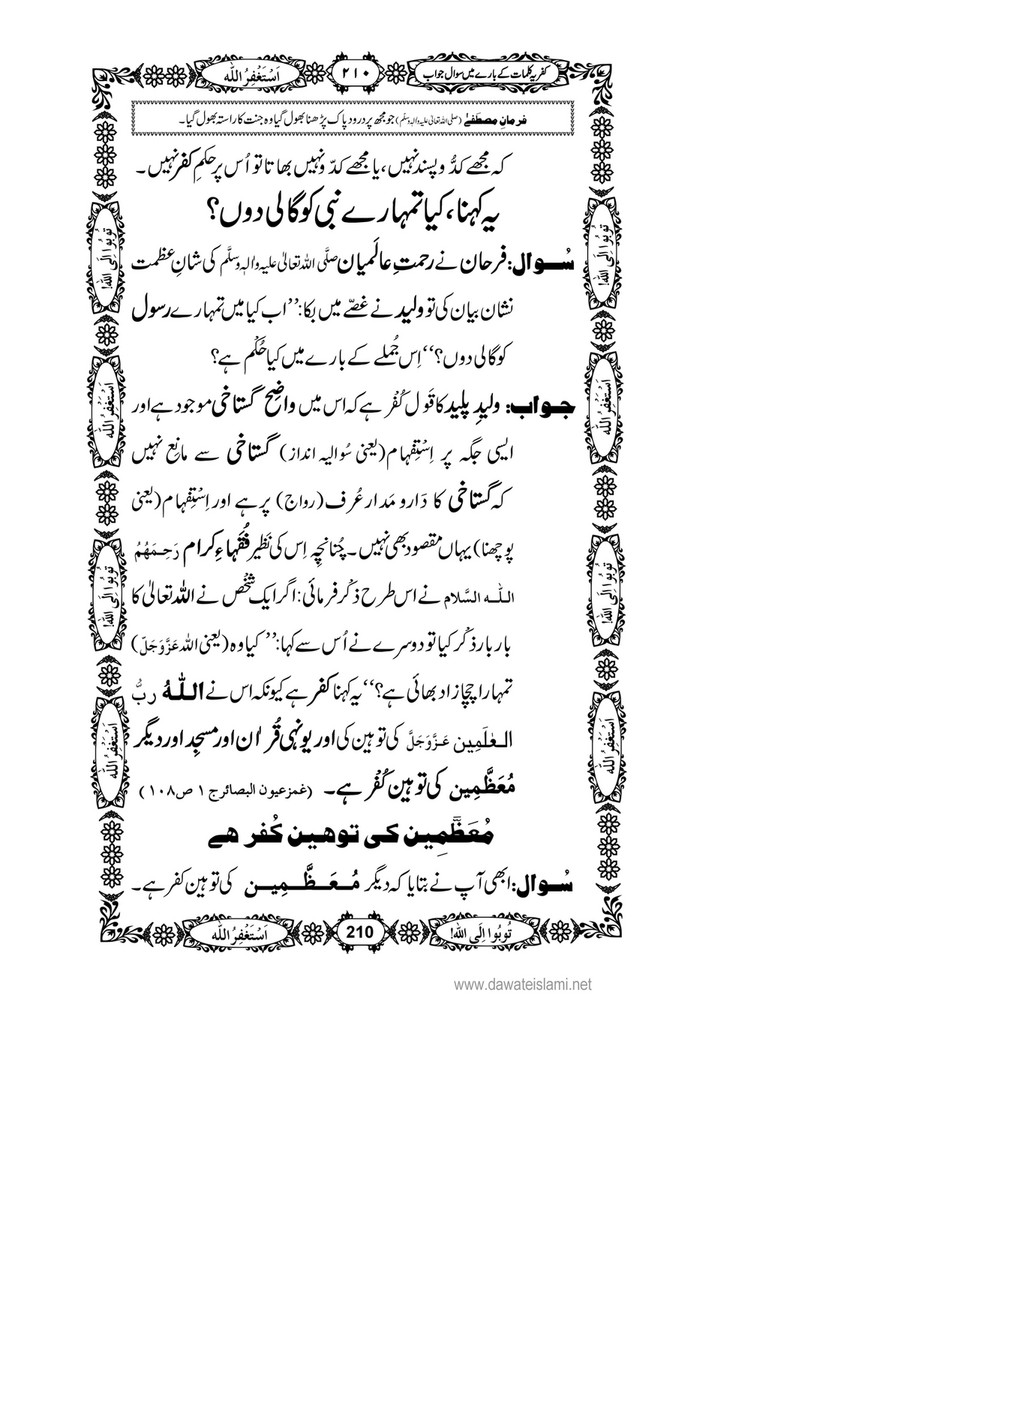 کفریہ کلمات کے بارے میں سوال جواب
۲۱۰
اَسْتَغْفِرُ اللّٰه
فرمانِ مصطَفےٰ (صلی اللہ تعالیٰ علیہ والہٖ وسلّم) جو مجھ پر درود پاک پڑھنا بھول گیا وہ جنت کا راستہ بھول گیا۔
کہ مجھے کدُّ و پسند نہیں، یا مجھے کدّ و نہیں بھاتا تو اُس پر حکمِ کفر نہیں۔
یہ کہنا، کیا تمہارے نبی کو گالی دوں؟
سُوال: فرحان نے رحمتِ عالَمیان صلَّی اللہ تعالیٰ علیہ والہٖ وسلَّم کی شانِ عظمت
نشان بیان کی تو ولید نے غصّے میں بکا: ’’اب کیا میں تمہارے رسول
کو گالی دوں؟‘‘ اِس جُملے کے بارے میں کیا حُکْم ہے؟
جواب: ولیدِ پلید کا قَول کُفْر ہے کہ اس میں واضِح گستاخی موجود ہے اور
ایسی جگہ پر اِسْتِفہام (یعنی سُوالیہ انداز) گستاخی سے مانِع نہیں
کہ گستاخی کا دَارو مَدار عُرف (رواج) پر ہے اور اِسْتِفہام (یعنی
پوچھنا) یہاں مقصود بھی نہیں۔ چُنانچِہ اِس کی نَظِیر فُقَہاءِ کرام رَحِمَهُمُ
اللّٰه السَّلام نے اس طرح ذکْر فرمائی: اگر ایک شَخْص نے اللہ تعالیٰ کا
بار بار ذکْر کیا تو دوسرے نے اُس سے کہا: ’’کیا وہ (یعنی اللہ عَزَّوَجَلّ)
تمہارا چچازاد بھائی ہے؟‘‘ یہ کہنا کفر ہے کیونکہ اس نے اللّٰهُ ربُّ
العٰلَمِین عَزَّوَجَلَّ کی توہین کی اور یونہی قُراٰن اور مسجِد اور دیگر
مُعَظَّمِین کی توہین کُفْر ہے۔ (غمز عیون البصائر ج ۱ ص ۱۰۸)
مُعَظَّمِین کی توھین کُفر ھے
سُوال: ابھی آپ نے بتایا کہ دیگر مُعَظَّمِین کی توہین کفر ہے۔
تُوبُوا اِلَی اللّٰه!
210
اَسْتَغْفِرُ اللّٰه
تُوبُوا اِلَی اللّٰه!
اَسْتَغْفِرُ اللّٰه
تُوبُوا اِلَی اللّٰه!
اَسْتَغْفِرُ اللّٰه
تُوبُوا اِلَی اللّٰه!
اَسْتَغْفِرُ اللّٰه
تُوبُوا اِلَی اللّٰه!
اَسْتَغْفِرُ اللّٰه
www.dawateislami.net